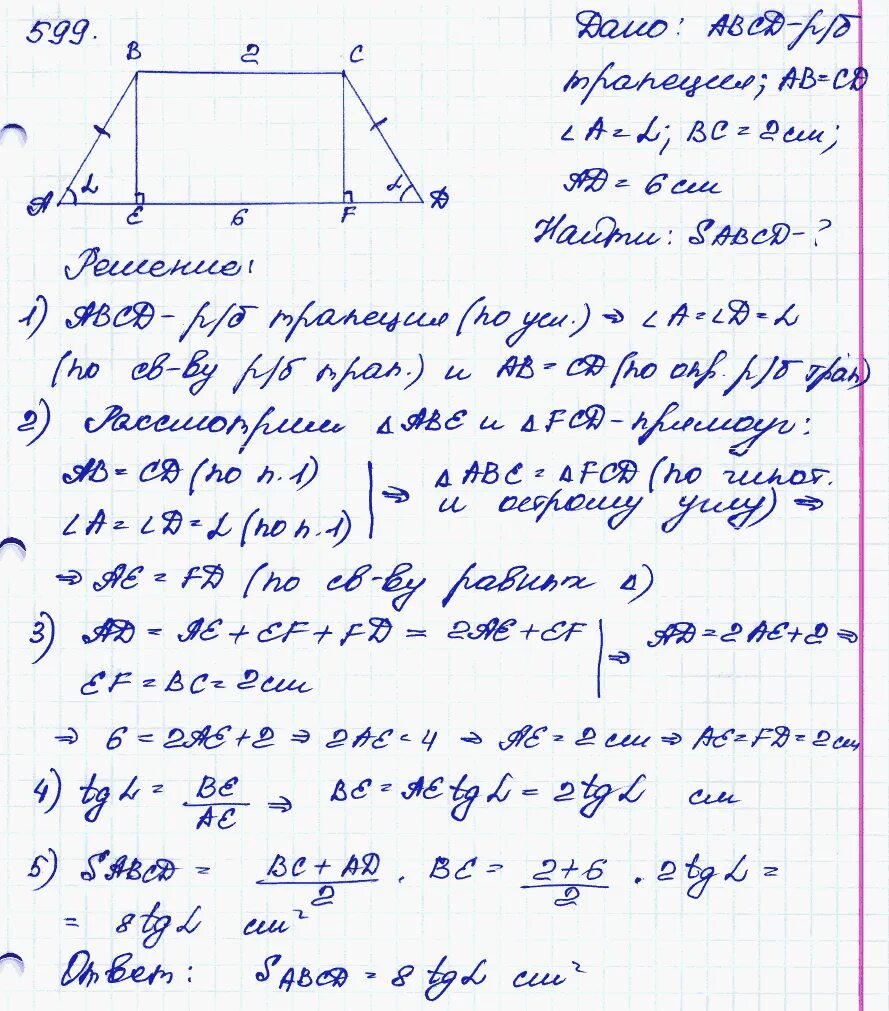 599.
B 2 C
α α
A E 6 F D
Дано: ABCD-р/б
трапеция; AB=CD
∠A=α; BC=2см;
AD=6см
Найти: SABCD-?
Решение:
1) ABCD-р/б трапеция (по усл.) ⇒ ∠A=∠D=α
(по св-ву р/б трап.) и AB=CD (по опр. р/б трап)
2) Рассмотрим △ABE и △FCD-прямоуг:
AB=CD (по п.1)
∠A=∠D=α (по п.1)
⇒ △ABE=△FCD (по гипот.
и острому углу) ⇒
⇒ AE=FD (по св-ву равных △)
3) AD=AE+EF+FD=2AE+EF
EF=BC=2см
⇒ AD=2AE+2 ⇒
⇒ 6=2AE+2 ⇒ 2AE=4 ⇒ AE=2см ⇒ AE=FD=2см
4) tgα = BE/AE ⇒ BE=AEtgα=2tgα см
5) SABCD = (BC+AD)/2 · BE = (2+6)/2 · 2tgα =
= 8tgα см²
Ответ: SABCD=8tgα см²